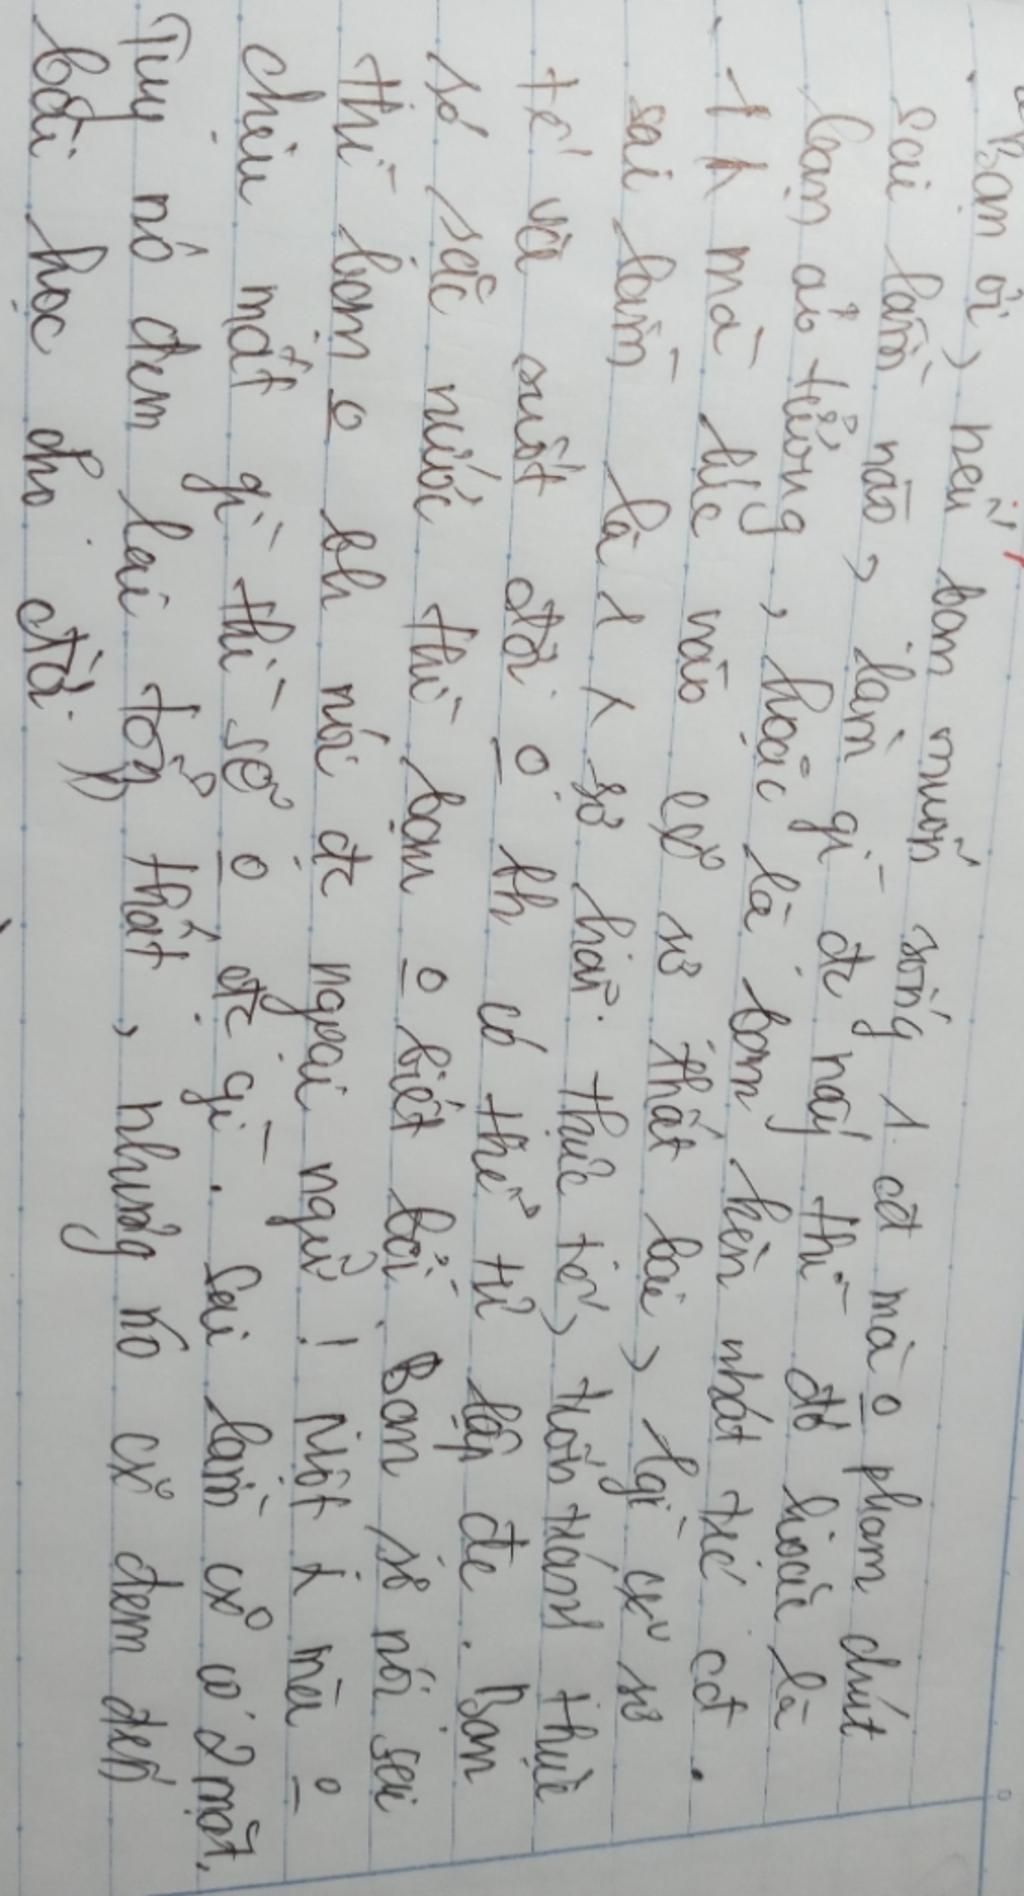 Bạn ơi, nếu bạn muốn sống 1 cđ mà o phạm chút
sai lầm nào, làm gì đc nấy thì đó hoặc là
bạn ảo tưởng, hoặc là bạm hèn nhát trc cđ.
- 1 mà lúc nào cx sợ thất bại, lgì cx sợ
sai lầm là 1 sợ hãi thực tế, trốn tránh thực
tế và suốt đời o bh có thể tự lập đc. Bạn
sợ sặc nước thì bạn o biết bơi. Bạn sợ nói sai
thì bạn o bh nói đc ngoại ngữ! Một mà o
chịu mất gì thì sẽ o đc gì. Sai lầm cx có 2 mặt.
Tuy nó đem lại tổn thất, nhưng nó cx đem đến
bài học cho đời.